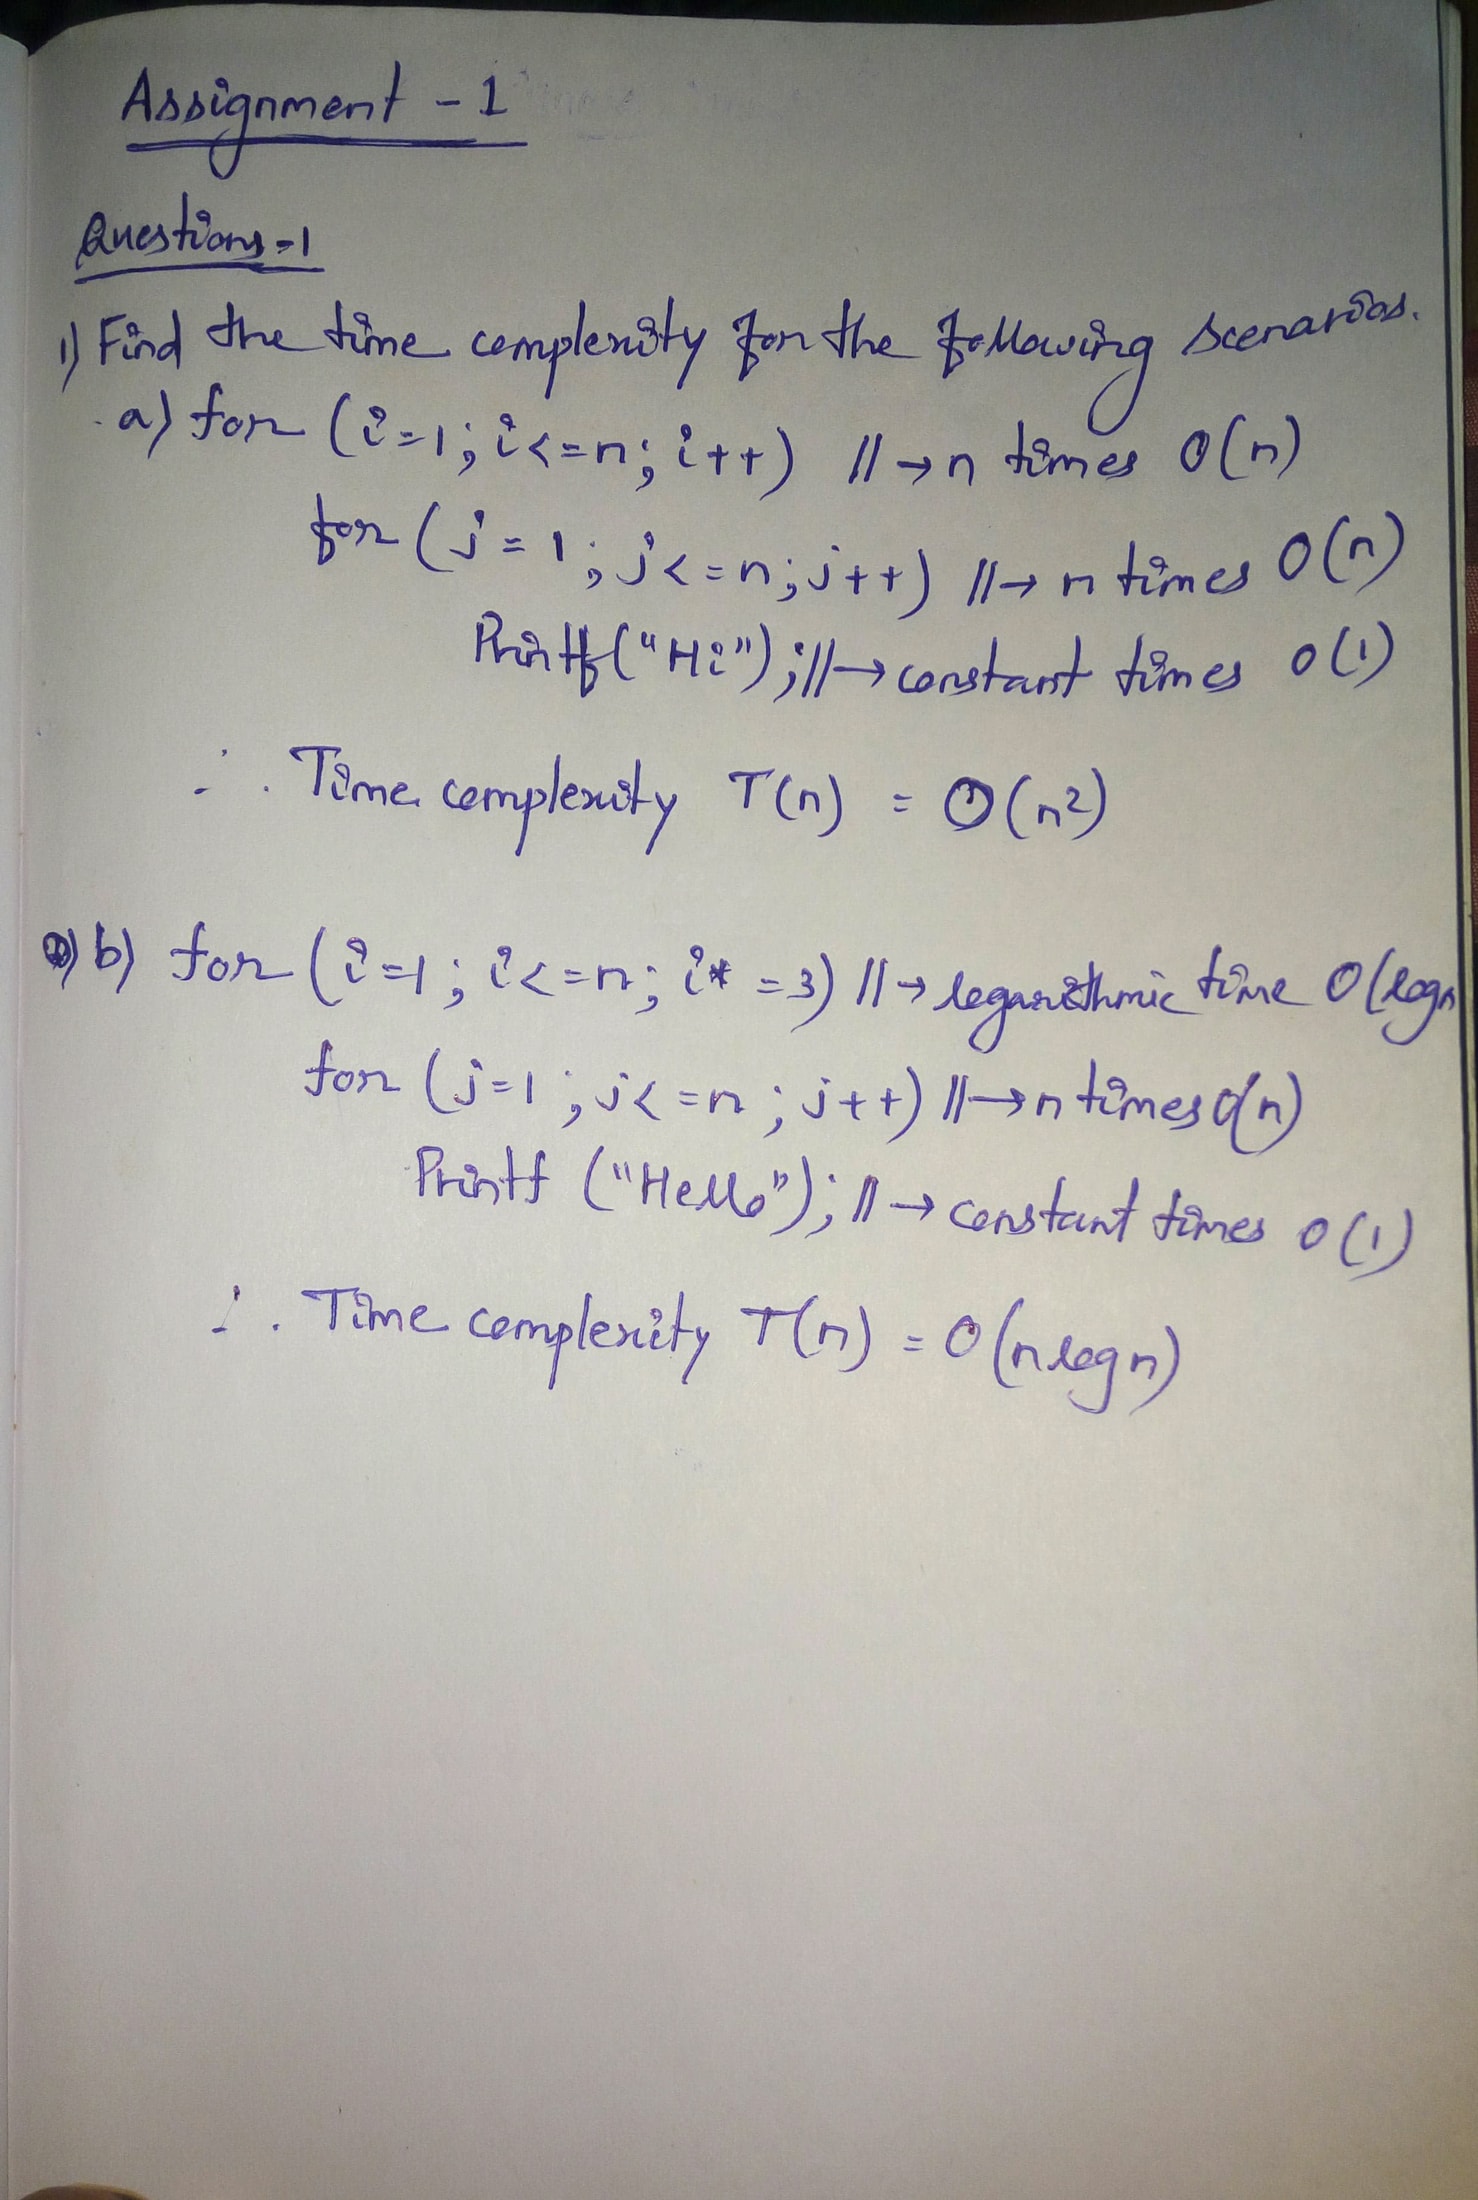 Assignment - 1
Questions-1
1) Find the time complexity for the following scenarios.
a) for (i=1; i<=n; i++) // → n times O(n)
for (j=1; j<=n; j++) // → n times O(n)
Printf("Hi"); // → constant times O(1)
∴ Time complexity T(n) = O(n²)
b) for (i=1; i<=n; i* =3) // → logarithmic time O(logn
for (j=1; j<=n; j++) // → n times O(n)
Printf ("Hello"); // → constant times O(1)
∴ Time complexity T(n) = O(nlogn)